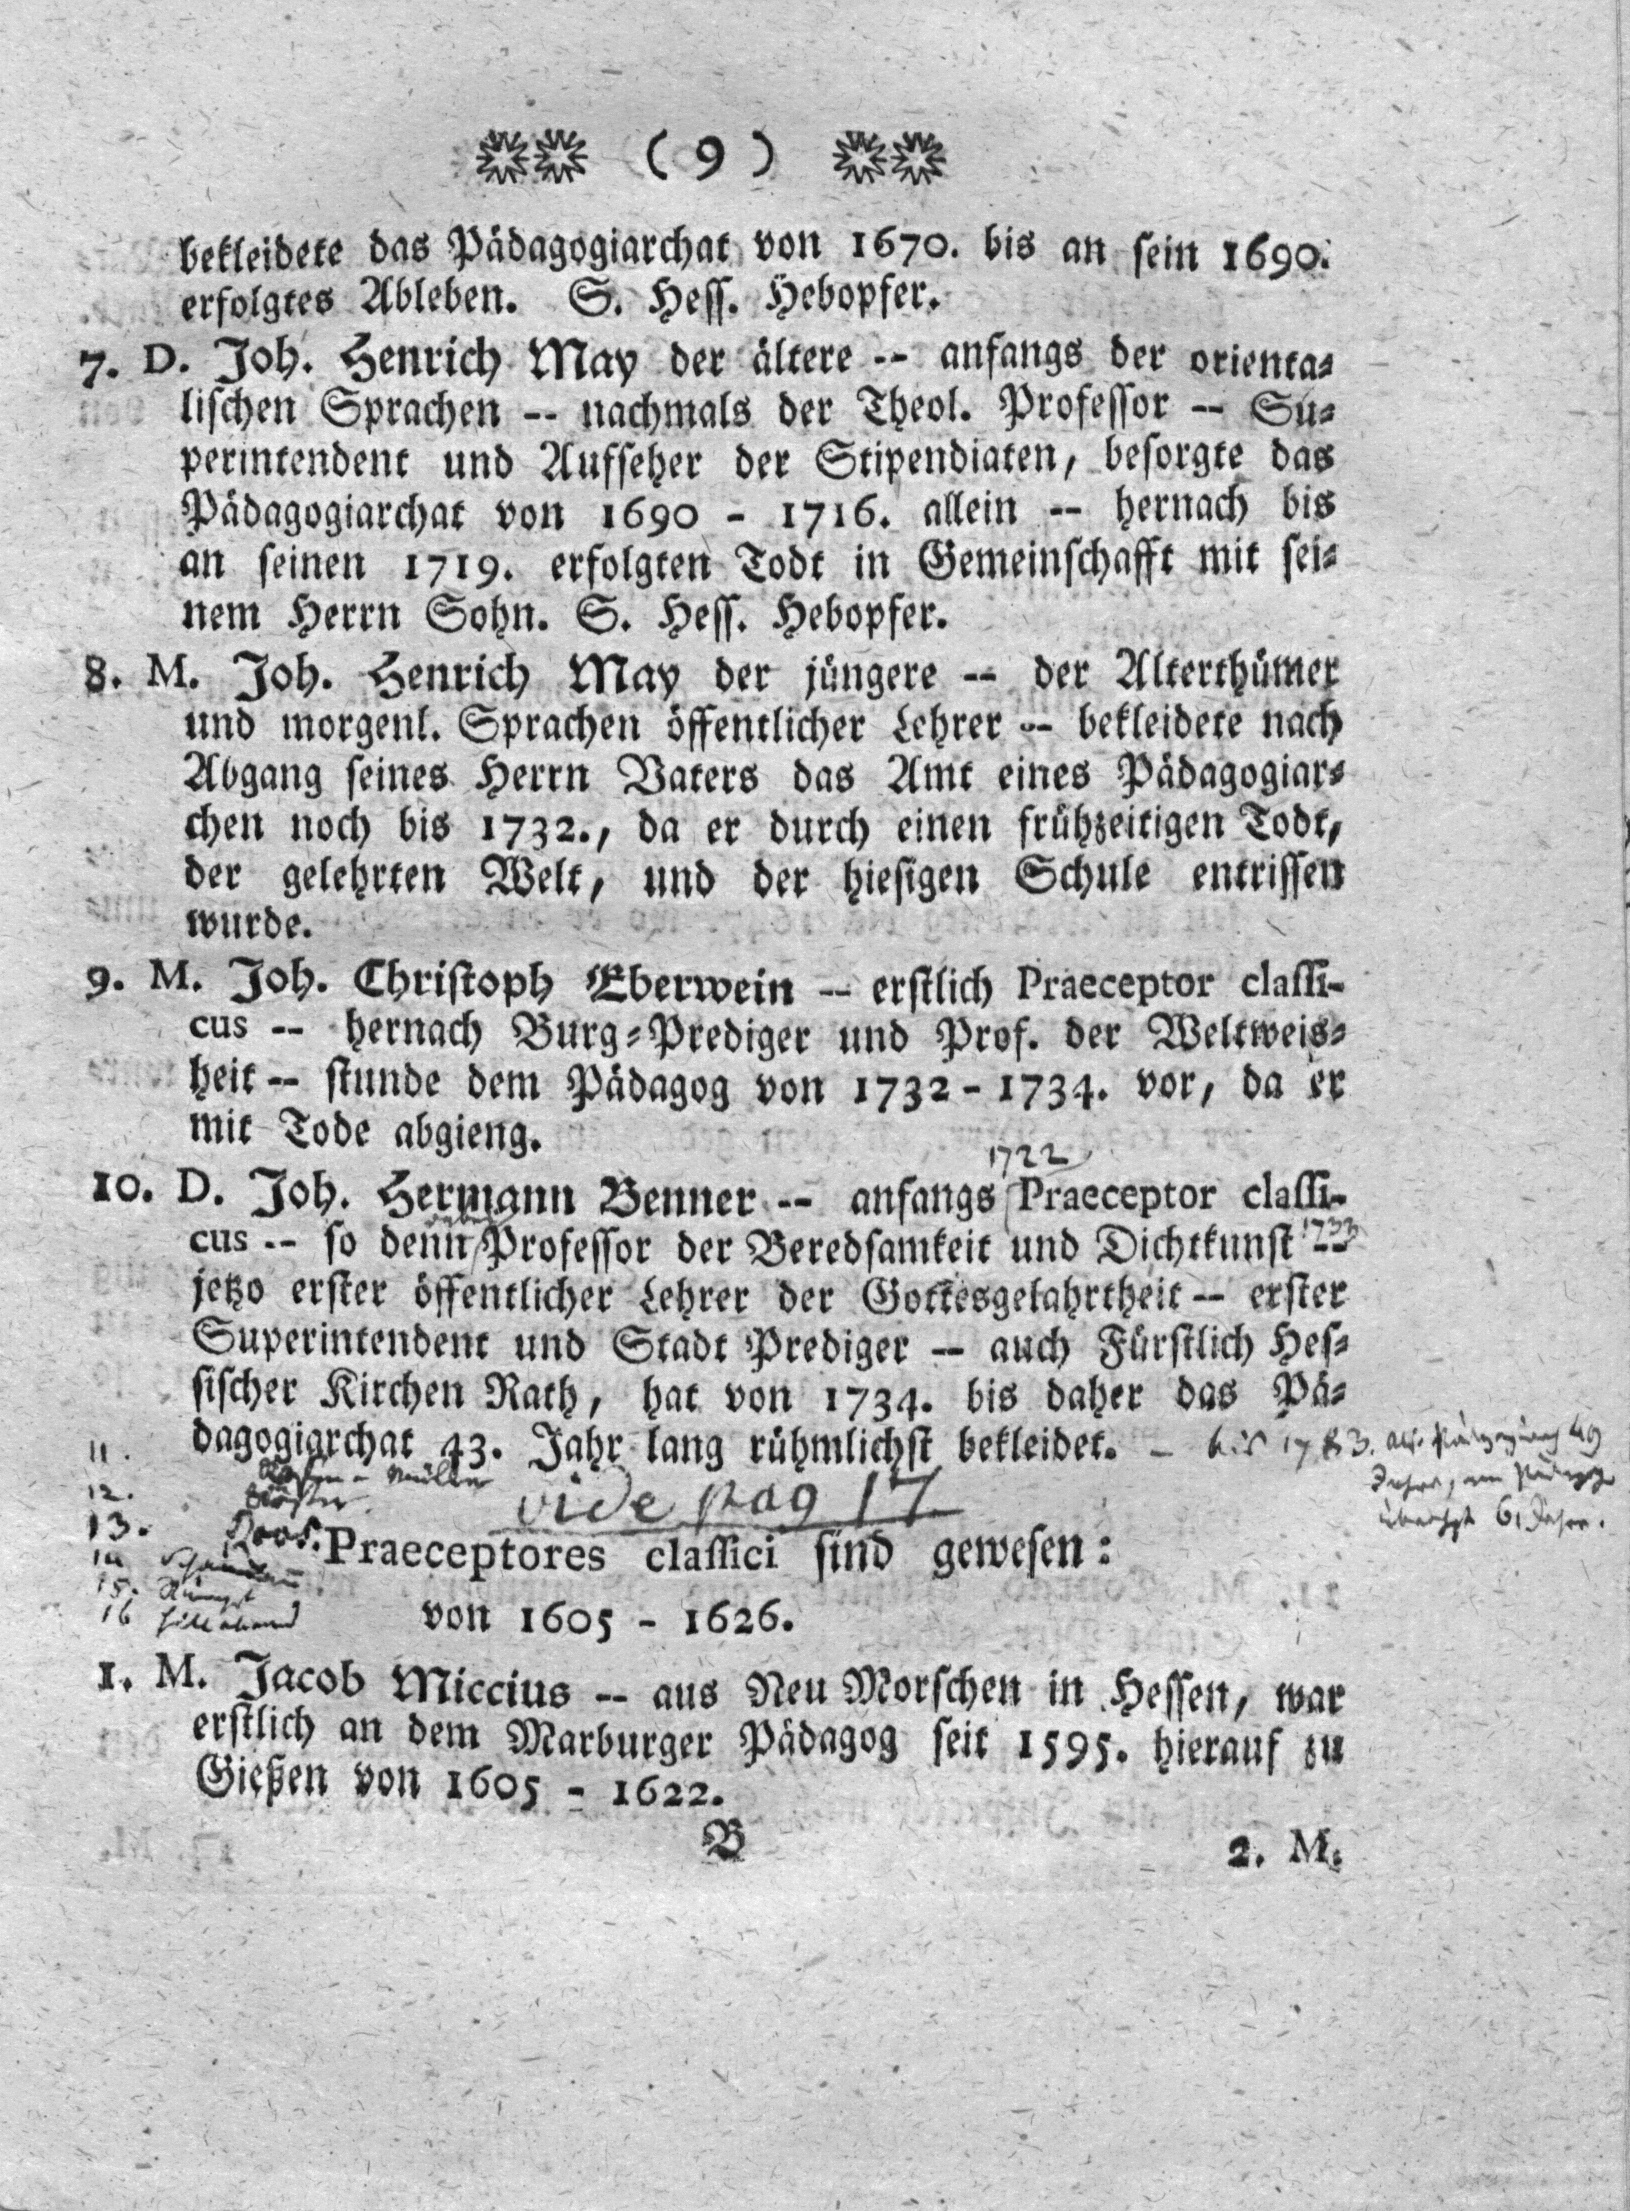 ( 9 )
bekleidete das Pädagogiarchat von 1670. bis an sein 1690.
erfolgtes Ableben. S. Hess. Hebopfer.
7. D. Joh. Henrich May der ältere -- anfangs der orienta-
lischen Sprachen -- nachmals der Theol. Professor -- Su-
perintendent und Aufseher der Stipendiaten, besorgte das
Pädagogiarchat von 1690 - 1716. allein -- hernach bis
an seinen 1719. erfolgten Todt in Gemeinschafft mit sei-
nem Herrn Sohn. S. Hess. Hebopfer.
8. M. Joh. Henrich May der jüngere -- der Alterthümer
und morgenl. Sprachen öffentlicher Lehrer -- bekleidete nach
Abgang seines Herrn Vaters das Amt eines Pädagogiar-
chen noch bis 1732., da er durch einen frühzeitigen Todt,
der gelehrten Welt, und der hiesigen Schule entrissen
wurde.
9. M. Joh. Christoph Eberwein -- erstlich Praeceptor classi-
cus -- hernach Burg-Prediger und Prof. der Weltweis-
heit -- stunde dem Pädagog von 1732 - 1734. vor, da er
mit Tode abgieng.
1722
10. D. Joh. Hermann Benner -- anfangs Praeceptor classi-
cus -- so denn Professor der Beredsamkeit und Dichtkunst --
jetzo erster öffentlicher Lehrer der Gottesgelahrtheit -- erster
Superintendent und Stadt Prediger -- auch Fürstlich Hes-
sischer Kirchen Rath, hat von 1734. bis daher das Pä-
dagogiarchat 43. Jahr lang rühmlichst bekleidet. – bis 1783.
11.
12.
vide pag 17
13. Roos.
Praeceptores classici sind gewesen:
15.
16
von 1605 - 1626.
1. M. Jacob Miccius -- aus Neu Morschen in Hessen, war
erstlich an dem Marburger Pädagog seit 1595. hierauf zu
Gießen von 1605 - 1622.
B
2. M.